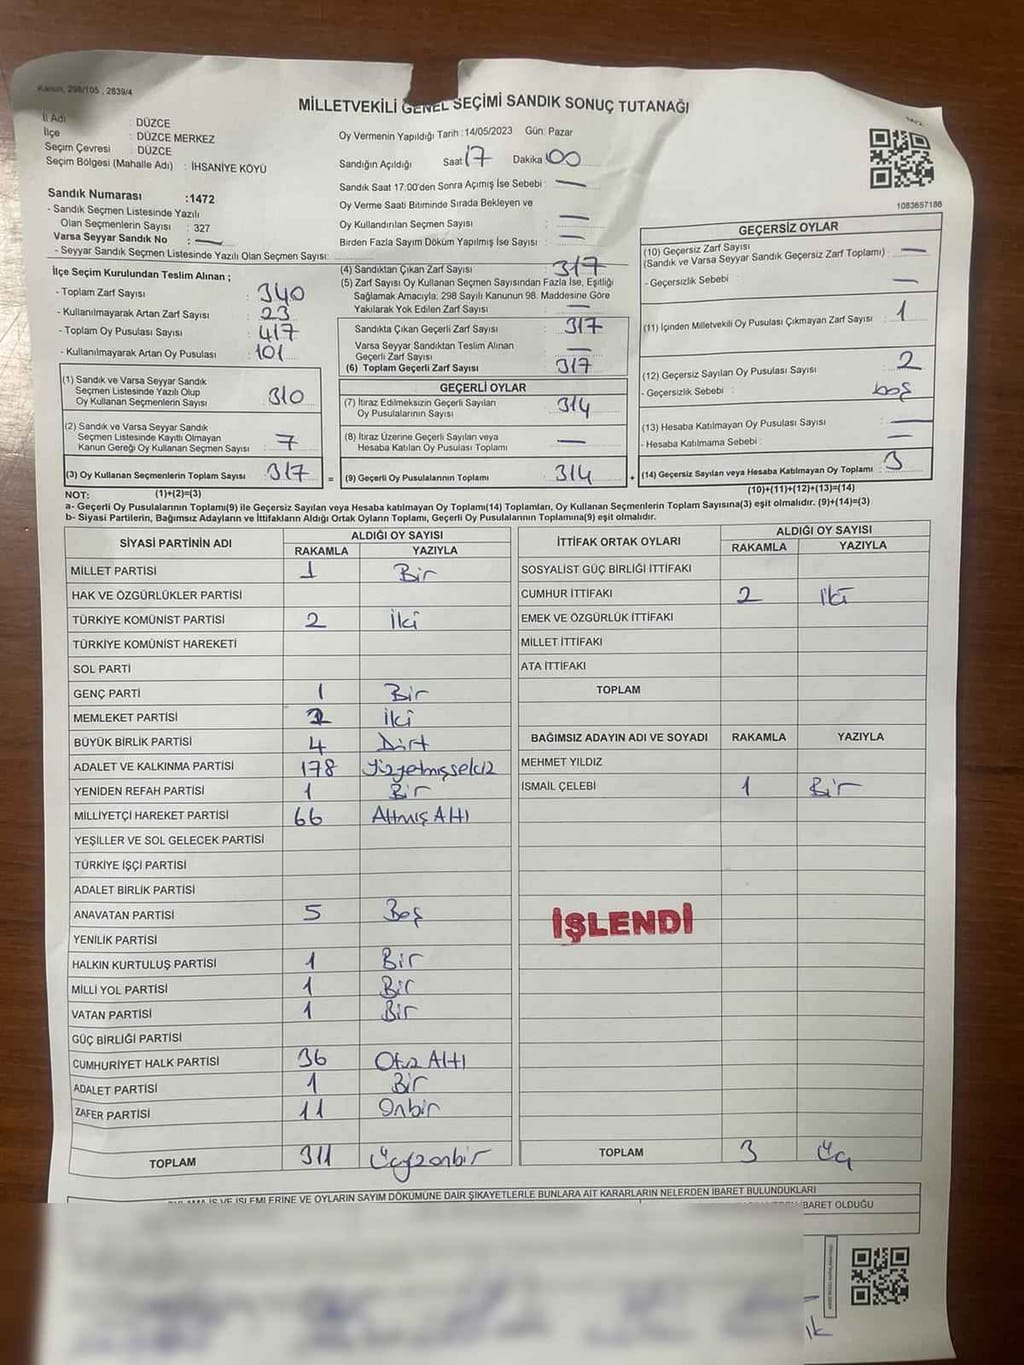 Kanun, 298/105 , 2839/4
MİLLETVEKİLİ GENEL SEÇİMİ SANDIK SONUÇ TUTANAĞI
İl Adı : DÜZCE
İlçe : DÜZCE MERKEZ
Seçim Çevresi : DÜZCE
Seçim Bölgesi (Mahalle Adı) : İHSANİYE KÖYÜ
Sandık Numarası :1472
- Sandık Seçmen Listesinde Yazılı
Olan Seçmenlerin Sayısı : 327
Varsa Seyyar Sandık No :
- Seyyar Sandık Seçmen Listesinde Yazılı Olan Seçmen Sayısı:
Oy Vermenin Yapıldığı Tarih :14/05/2023 Gün: Pazar
Sandığın Açıldığı Saat 17 Dakika 00
Sandık Saat 17:00'den Sonra Açımış İse Sebebi : —
Oy Verme Saati Bitiminde Sırada Bekleyen ve
Oy Kullandırılan Seçmen Sayısı : —
Birden Fazla Sayım Döküm Yapılmış İse Sayısı : —
1083657186
İlçe Seçim Kurulundan Teslim Alınan ;
- Toplam Zarf Sayısı : 340
- Kullanılmayarak Artan Zarf Sayısı : 23
- Toplam Oy Pusulası Sayısı : 417
- Kullanılmayarak Artan Oy Pusulası : 101
(1) Sandık ve Varsa Seyyar Sandık
Seçmen Listesinde Yazılı Olup
Oy Kullanan Seçmenlerin Sayısı : 310
(2) Sandık ve Varsa Seyyar Sandık
Seçmen Listesinde Kayıtlı Olmayan
Kanun Gereği Oy Kullanan Seçmen Sayısı : 7
(3) Oy Kullanan Seçmenlerin Toplam Sayısı : 317
(4) Sandıktan Çıkan Zarf Sayısı : 317
(5) Zarf Sayısı Oy Kullanan Seçmen Sayısından Fazla İse, Eşitliği
Sağlamak Amacıyla, 298 Sayılı Kanunun 98. Maddesine Göre
Yakılarak Yok Edilen Zarf Sayısı : —
Sandıkta Çıkan Geçerli Zarf Sayısı : 317
Varsa Seyyar Sandıktan Teslim Alınan
Geçerli Zarf Sayısı : —
(6) Toplam Geçerli Zarf Sayısı : 317
GEÇERLİ OYLAR
(7) İtiraz Edilmeksizin Geçerli Sayılan
Oy Pusulalarının Sayısı : 314
(8) İtiraz Üzerine Geçerli Sayılan veya
Hesaba Katılan Oy Pusulaları Toplamı : —
= (9) Geçerli Oy Pusulalarının Toplamı : 314 +
GEÇERSİZ OYLAR
(10) Geçersiz Zarf Sayısı
(Sandık ve Varsa Seyyar Sandık Geçersiz Zarf Toplamı) : —
- Geçersizlik Sebebi : —
(11) İçinden Milletvekili Oy Pusulası Çıkmayan Zarf Sayısı : 1
(12) Geçersiz Sayılan Oy Pusulası Sayısı : 2
- Geçersizlik Sebebi : boş
(13) Hesaba Katılmayan Oy Pusulası Sayısı : —
- Hesaba Katılmama Sebebi : —
(14) Geçersiz Sayılan veya Hesaba Katılmayan Oy Toplamı : 3
NOT: (1)+(2)=(3)
(10)+(11)+(12)+(13)=(14)
a- Geçerli Oy Pusulalarının Toplamı(9) ile Geçersiz Sayılan veya Hesaba katılmayan Oy Toplamı(14) Toplamları, Oy Kullanan Seçmenlerin Toplam Sayısına(3) eşit olmalıdır. (9)+(14)=(3)
b- Siyasi Partilerin, Bağımsız Adayların ve İttifakların Aldığı Ortak Oyların Toplamı, Geçerli Oy Pusulalarının Toplamına(9) eşit olmalıdır.
SİYASİ PARTİNİN ADI ALDIĞI OY SAYISI
RAKAMLA YAZIYLA
MİLLET PARTİSİ 1 Bir
HAK VE ÖZGÜRLÜKLER PARTİSİ
TÜRKİYE KOMÜNİST PARTİSİ 2 İki
TÜRKİYE KOMÜNİST HAREKETİ
SOL PARTİ
GENÇ PARTİ 1 Bir
MEMLEKET PARTİSİ 2 İki
BÜYÜK BİRLİK PARTİSİ 4 Dört
ADALET VE KALKINMA PARTİSİ 178 Yüzyetmişsekiz
YENİDEN REFAH PARTİSİ 1 Bir
MİLLİYETÇİ HAREKET PARTİSİ 66 Altmış Altı
YEŞİLLER VE SOL GELECEK PARTİSİ
TÜRKİYE İŞÇİ PARTİSİ
ADALET BİRLİK PARTİSİ
ANAVATAN PARTİSİ 5 Beş
YENİLİK PARTİSİ
HALKIN KURTULUŞ PARTİSİ 1 Bir
MİLLİ YOL PARTİSİ 1 Bir
VATAN PARTİSİ 1 Bir
GÜÇ BİRLİĞİ PARTİSİ
CUMHURİYET HALK PARTİSİ 36 Otuz Altı
ADALET PARTİSİ 1 Bir
ZAFER PARTİSİ 11 Onbir
TOPLAM 311 Üçyüzonbir
İTTİFAK ORTAK OYLARI ALDIĞI OY SAYISI
RAKAMLA YAZIYLA
SOSYALİST GÜÇ BİRLİĞİ İTTİFAKI
CUMHUR İTTİFAKI 2 İki
EMEK VE ÖZGÜRLÜK İTTİFAKI
MİLLET İTTİFAKI
ATA İTTİFAKI
TOPLAM
BAĞIMSIZ ADAYIN ADI VE SOYADI RAKAMLA YAZIYLA
MEHMET YILDIZ
İSMAİL ÇELEBİ 1 Bir
İŞLENDİ
TOPLAM 3 Üç
İŞLEMLERİNE VE OYLARIN SAYIM DÖKÜMÜNE DAİR ŞİKAYETLERLE BUNLARA AİT KARARLARIN NELERDEN İBARET BULUNDUKLARI
İBARET OLDUĞU